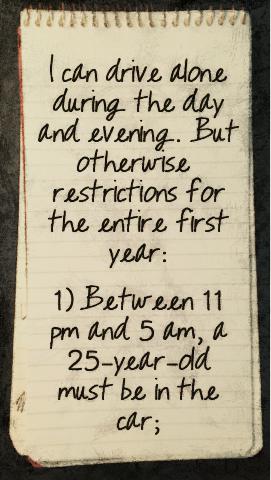 I can drive alone
during the day
and evening. But
otherwise
restrictions for
the entire first
year:
1) Between 11
pm and 5 am, a
25-year-old
must be in the
car;